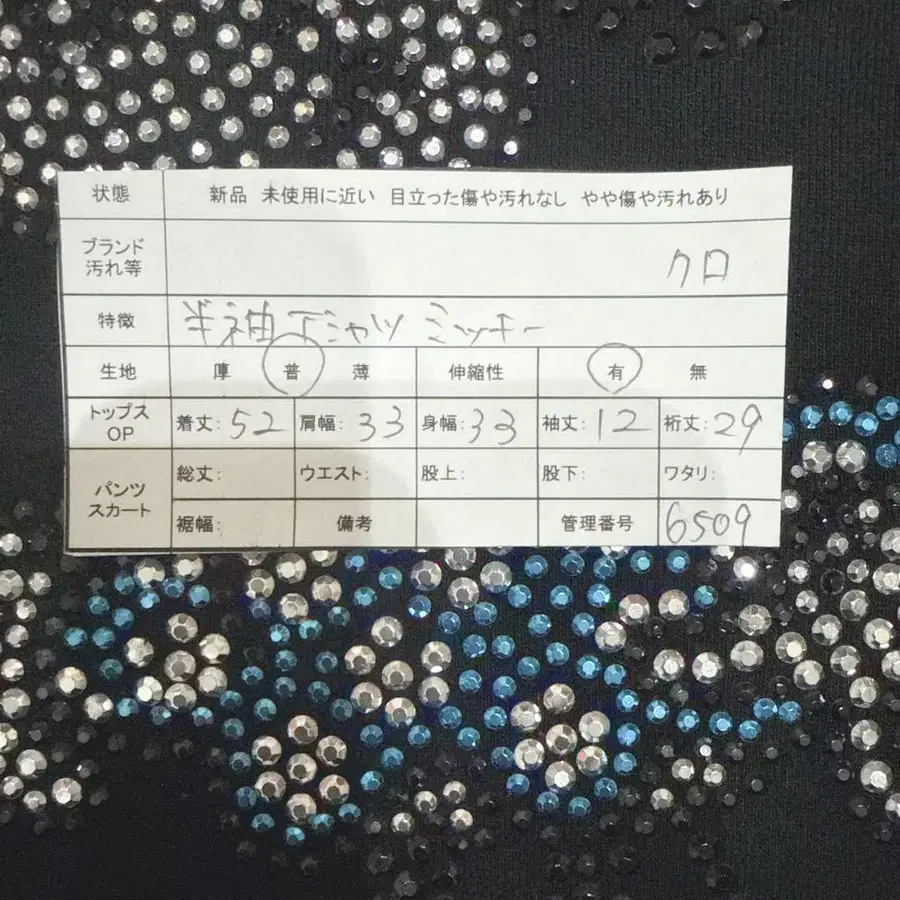 状態 新品 未使用に近い 目立った傷や汚れなし やや傷や汚れあり
ブランド
汚れ等 クロ
特徴 半袖Tシャツ ミッキー
生地 厚 普 薄 伸縮性 有 無
トップス
OP 着丈: 52 肩幅: 33 身幅: 33 袖丈: 12 裄丈: 29
パンツ
スカート 総丈: ウエスト: 股上: 股下: ワタリ:
裾幅: 備考 管理番号 6509